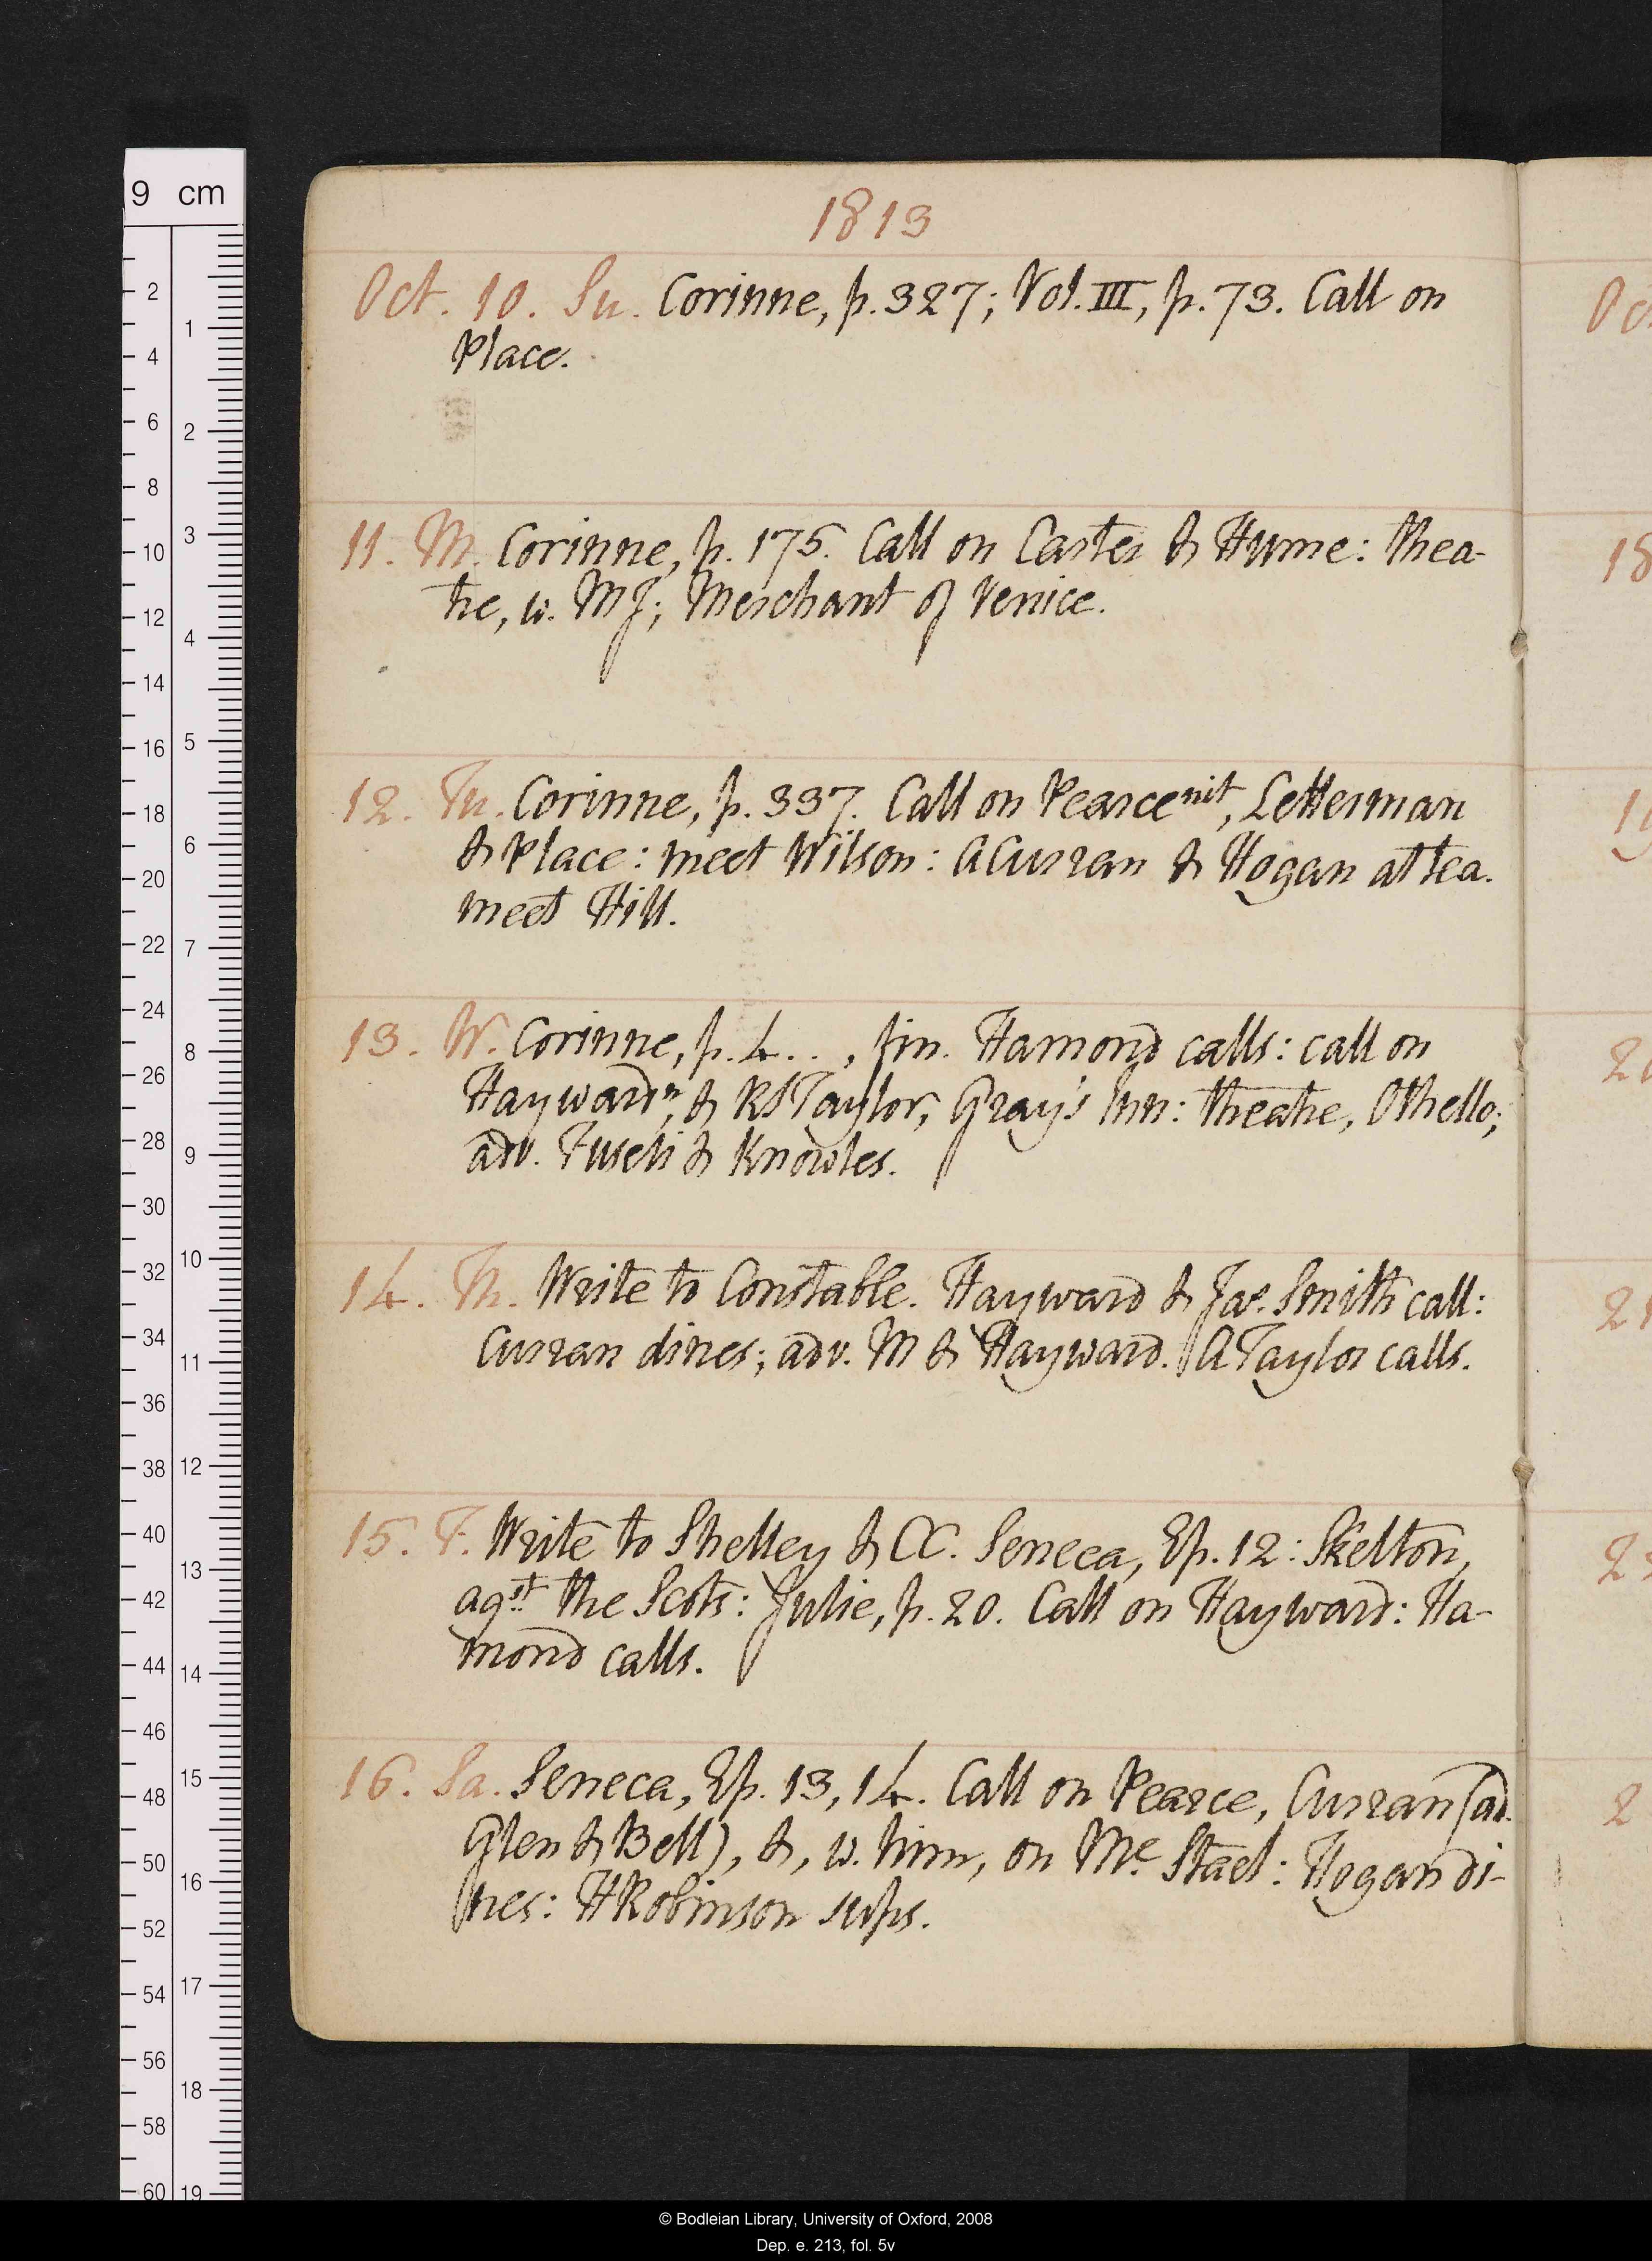 1813
Oct. 10. Su. Corinne, p. 327; Vol. III, p. 73. Call on
Place.
11. M. Corinne, p. 175. Call on Carter & Hume: thea-
tre, w. MJ; Merchant of Venice.
12. Tu. Corinne, p. 337. Call on Pearce nit, Letterman
& Place: meet Wilson: A Curran & Hogan at tea.
meet Hill.
13. W. Corinne, p. 4 . . , fin. Hamond calls: call on
Hayward n, & RS Taylor, Gray's Inn: theatre, Othello;
adv. Fuseli & Knowles.
14. Th. Write to Constable. Hayward & Jas. Smith call:
Curran dines; adv. M & Hayward. A Taylor calls.
15. F. Write to Shelley & CC. Seneca, Ep. 12: Skelton,
agst the Scots: Julie, p. 20. Call on Hayward: Ha-
mond calls.
16. Sa. Seneca, Ep. 13, 14. Call on Pearce, Curran (ad.
Glen & Bell), &, w. him, on Me. Stael: Hogan di-
nes: H Robinson sups.
Oc
18
19
20
21
2
2
9 cm
2
4
6
8
10
12
14
16
18
20
22
24
26
28
30
32
34
36
38
40
42
44
46
48
50
52
54
56
58
60
1
2
3
4
5
6
7
8
9
10
11
12
13
14
15
16
17
18
19
© Bodleian Library, University of Oxford, 2008
Dep. e. 213, fol. 5v